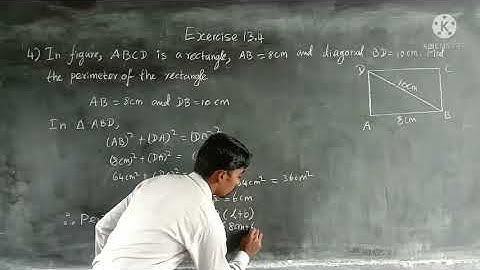 Exercise 13.4
4) In figure, ABCD is a rectangle, AB = 8cm and diagonal BD = 10cm. Find
the perimeter of the rectangle
D
C
10cm
B
A
8cm
AB = 8cm and DB = 10cm
In Δ ABD,
(AB)² + (DA)² = (DB)²
(8cm)² + (DA)² =
64cm² + (DA)²
64cm² = 36cm²
= 6cm
(l+b)
8cm+6
KINEMASTER